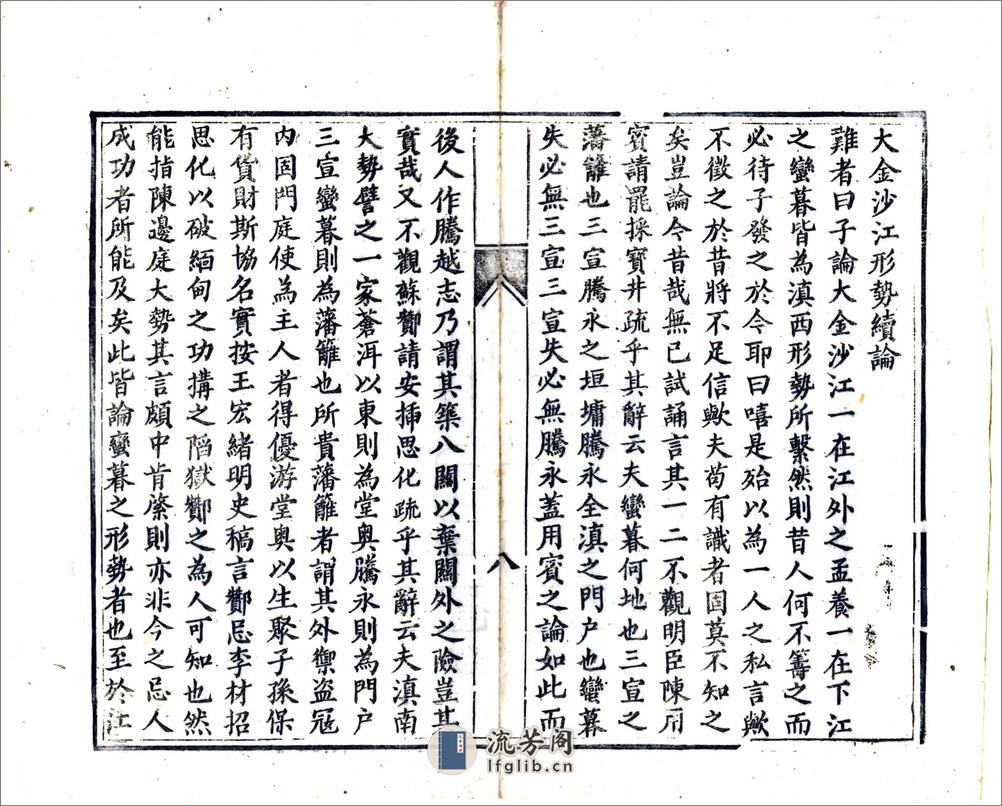 大金沙江形勢續論
難者曰子論大金沙江一在江外之孟養一在下江
之蠻暮皆為滇西形勢所繫然則昔人何不籌之而
必待子發之於今耶曰嘻是殆以為一人之私言歟
不徵之於昔將不足信歟夫苟有識者固莫不知之
矣豈論今昔哉無已試誦言其一二不觀明臣陳用
賓請罷採寶井疏乎其辭云夫蠻暮何地也三宣之
藩籬也三宣騰永之垣墉騰永全滇之門户也蠻暮
失必無三宣三宣失必無騰永葢用賓之論如此而
八
後人作騰越志乃謂其築八關以棄關外之險豈其
實哉又不觀蘇酇請安揷思化疏乎其辭云夫滇南
大勢譬之一家蒼洱以東則為堂奥騰永則為門户
三宣蠻暮則為藩籬也所貴藩籬者謂其外禦盗冦
内固門庭使為主人者得優游堂奥以生聚子孫保
有貨財斯協名實按王宏緒明史稿言酇忌李材招
思化以破緬甸之功搆之䧟獄酇之為人可知也然
能指陳邊庭大勢其言頗中肯綮則亦非今之忌人
成功者所能及矣此皆論蠻暮之形勢者也至於江
流芳阁
lfglib.cn